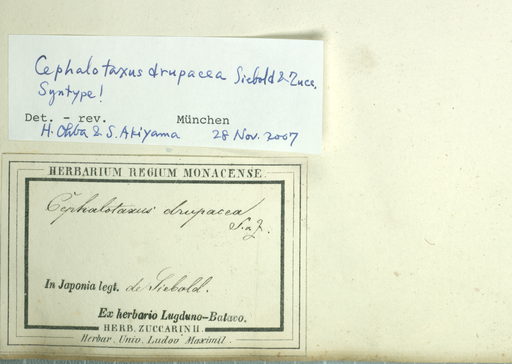 Cephalotaxus drupacea Siebold & Zucc.
Syntype!
Det. - rev. München
H. Ohba & S. Akiyama 28 Nov. 2007
HERBARIUM REGIUM MONACENSE
Cephalotaxus drupacea
S. a Z.
In Japonia legt. de Siebold.
Ex herbario Lugduno-Batavo.
HERB. ZUCCARINII.
Herbar. Univ. Ludov. Maximil.